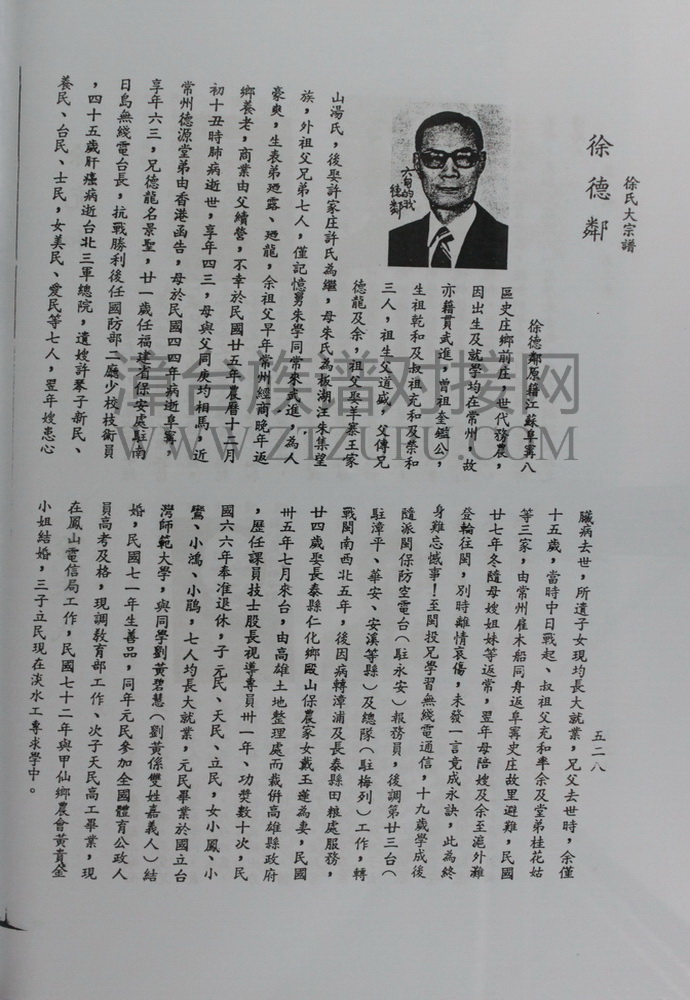 徐氏大宗譜
徐德鄰
六旬的我
德鄰
徐德鄰原籍江蘇阜寧八
區史庄鄉前庄，世代務農，
因出生及就學均在常州，故
亦籍貫武進，曾祖奎鑑公，
生祖乾和及叔祖充和及榮和
三人，祖生父道盛，父傳兄
德龍及余，祖父娶羊寨王家
山湯氏，後娶許家庄許氏為繼，母朱氏為板湖汪朱集望
族，外祖父兄弟七人，僅記憶舅朱學同常來武進，為人
豪爽，生表弟廼露、廼龍，余祖父早年常州經商晚年返
鄉養老，商業由父續營，不幸於民國廿五年農曆十二月
初十丑時肺病逝世，享年四三，母與父同庚均相馬，近
常州德源堂弟由香港函告，母於民國四四年病逝阜寧，
享年六三，兄德龍名景聖，廿一歲任福建省保安處駐南
日島無綫電台長，抗戰勝利後任國防部二廳少校技術員
，四十五歲肝癌病逝台北三軍總院，遺嫂許琴子新民、
養民、台民、士民，女美民、愛民等七人，翌年嫂患心
臟病去世，所遺子女現均長大就業，兄父去世時，余僅
十五歲，當時中日戰起、叔祖父充和率余及堂弟桂花姑
等三家，由常州雇木船同舟返阜寧史庄故里避難，民國
廿七年冬隨母嫂姐妹等返常，翌年母陪嫂及余至滬外灘
登輪往閩，別時離情哀傷，未發一言竟成永訣，此為終
身難忘憾事！至閩投兄學習無綫電通信，十九歲學成後
隨派閩保防空電台（駐永安）報務員，後調第廿三台（
駐漳平、華安、安溪等縣）及總隊（駐梅列）工作，轉
戰閩南西北五年，後因病轉漳浦及長泰縣田糧處服務，
廿四歲娶長泰縣仁化鄉殿山保農家女戴玉蓮為妻，民國
卅五年七月來台，由高雄土地整理處而裁併高雄縣政府
，歷任課員技士股長視導專員卅一年、功獎數十次，民
國六六年奉准退休，子元民、天民、立民，女小鳳、小
鸞、小鴻、小鵑，七人均長大就業，元民畢業於國立台
灣師範大學，與同學劉黃碧慧（劉黃係雙姓嘉義人）結
婚，民國七一年生善品，同年元民參加全國體育公政人
員高考及格，現調教育部工作、次子天民高工畢業，現
在鳳山電信局工作，民國七十二年與甲仙鄉農會黃貴金
小姐結婚，三子立民現在淡水工專求學中。
五二八
漳台族谱对接网
WWW.ZTZUPU.COM